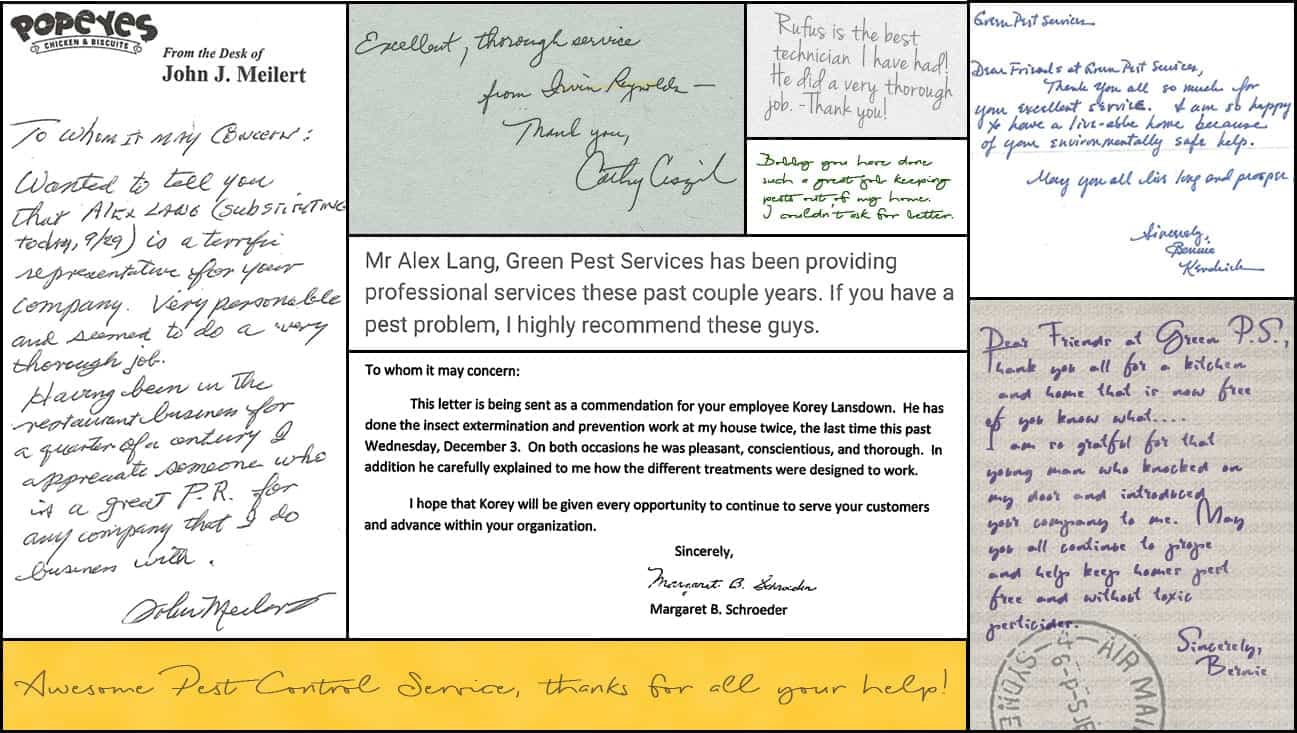 POPEYES
CHICKEN & BISCUITS
From the Desk of
John J. Meilert
To whom it may concern:
Wanted to tell you
that Alex Lang (substituting
today, 9/29) is a terrific
representative for your
company. Very personable
and seemed to do a very
thorough job.
Having been in the
restaurant business for
a quarter of a century I
appreciate someone who
is a great P.R. for
any company that I do
business with.
John Meilert
Excellent, thorough service
from Irvin Reynolds —
Thank you,
Cathy
Rufus is the best
technician I have had!
He did a very thorough
job. -Thank you!
Bobby you have done
such a great job keeping
pests out of my home.
I couldn't ask for better.
Green Pest Services
Dear Friends at Green Pest Services,
Thank you all so much for
your excellent service. I am so happy
to have a live-able home because
of your environmentally safe help.
May you all live long and prosper
Sincerely,
Bernie
Kendrick
Mr Alex Lang, Green Pest Services has been providing
professional services these past couple years. If you have a
pest problem, I highly recommend these guys.
To whom it may concern:
This letter is being sent as a commendation for your employee Korey Lansdown. He has
done the insect extermination and prevention work at my house twice, the last time this past
Wednesday, December 3. On both occasions he was pleasant, conscientious, and thorough. In
addition he carefully explained to me how the different treatments were designed to work.
I hope that Korey will be given every opportunity to continue to serve your customers
and advance within your organization.
Sincerely,
Margaret B. Schroeder
Margaret B. Schroeder
Dear Friends at Green P.S.,
Thank you all for a kitchen
and home that is now free
of you know what....
I am so gratful for that
young man who knocked on
my door and introduced
your company to me. May
you all continue to
and help keep homes pest
free and without toxic
pesticides.
Sincerely,
Bernie
AIR MAI
SYDNE
Awesome Pest Control Service, thanks for all your help!